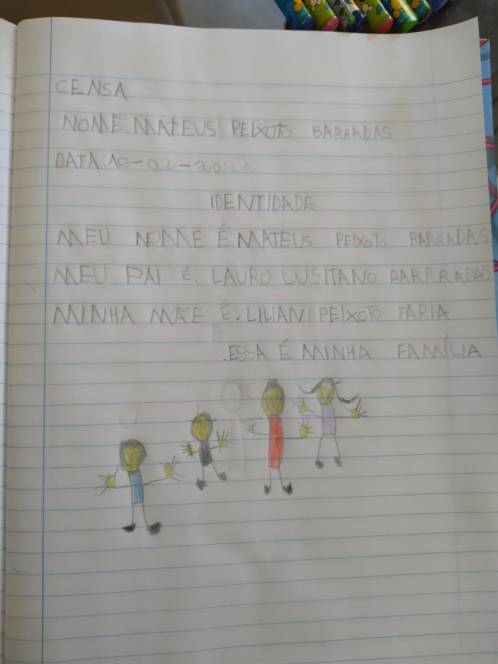 CENSA
NOME: MATEUS PEIXOTO BARRADAS
DATA: 16-02-2022
IDENTIDADE
MEU NOME É: MATEUS PEIXOTO BARRADAS
MEU PAI É. LAURO LUSITANO BARRRADAS
MINHA MÃE É. LILIAN PEIXOTO FARIA
.ESSA É MINHA FAMÍLIA